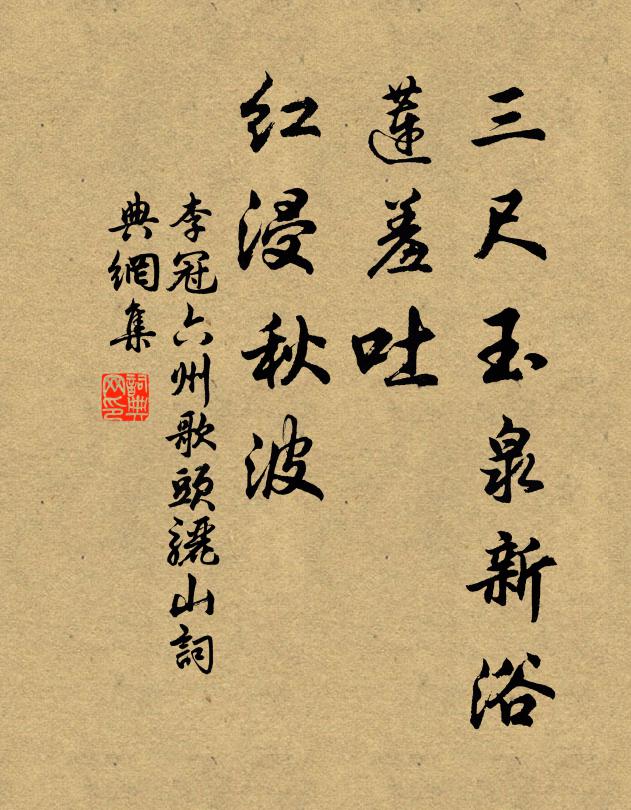 三尺玉泉新浴
蓮羞吐
紅浸秋波
李冠六州歌頭驪山詞
典網集
詞典
網印